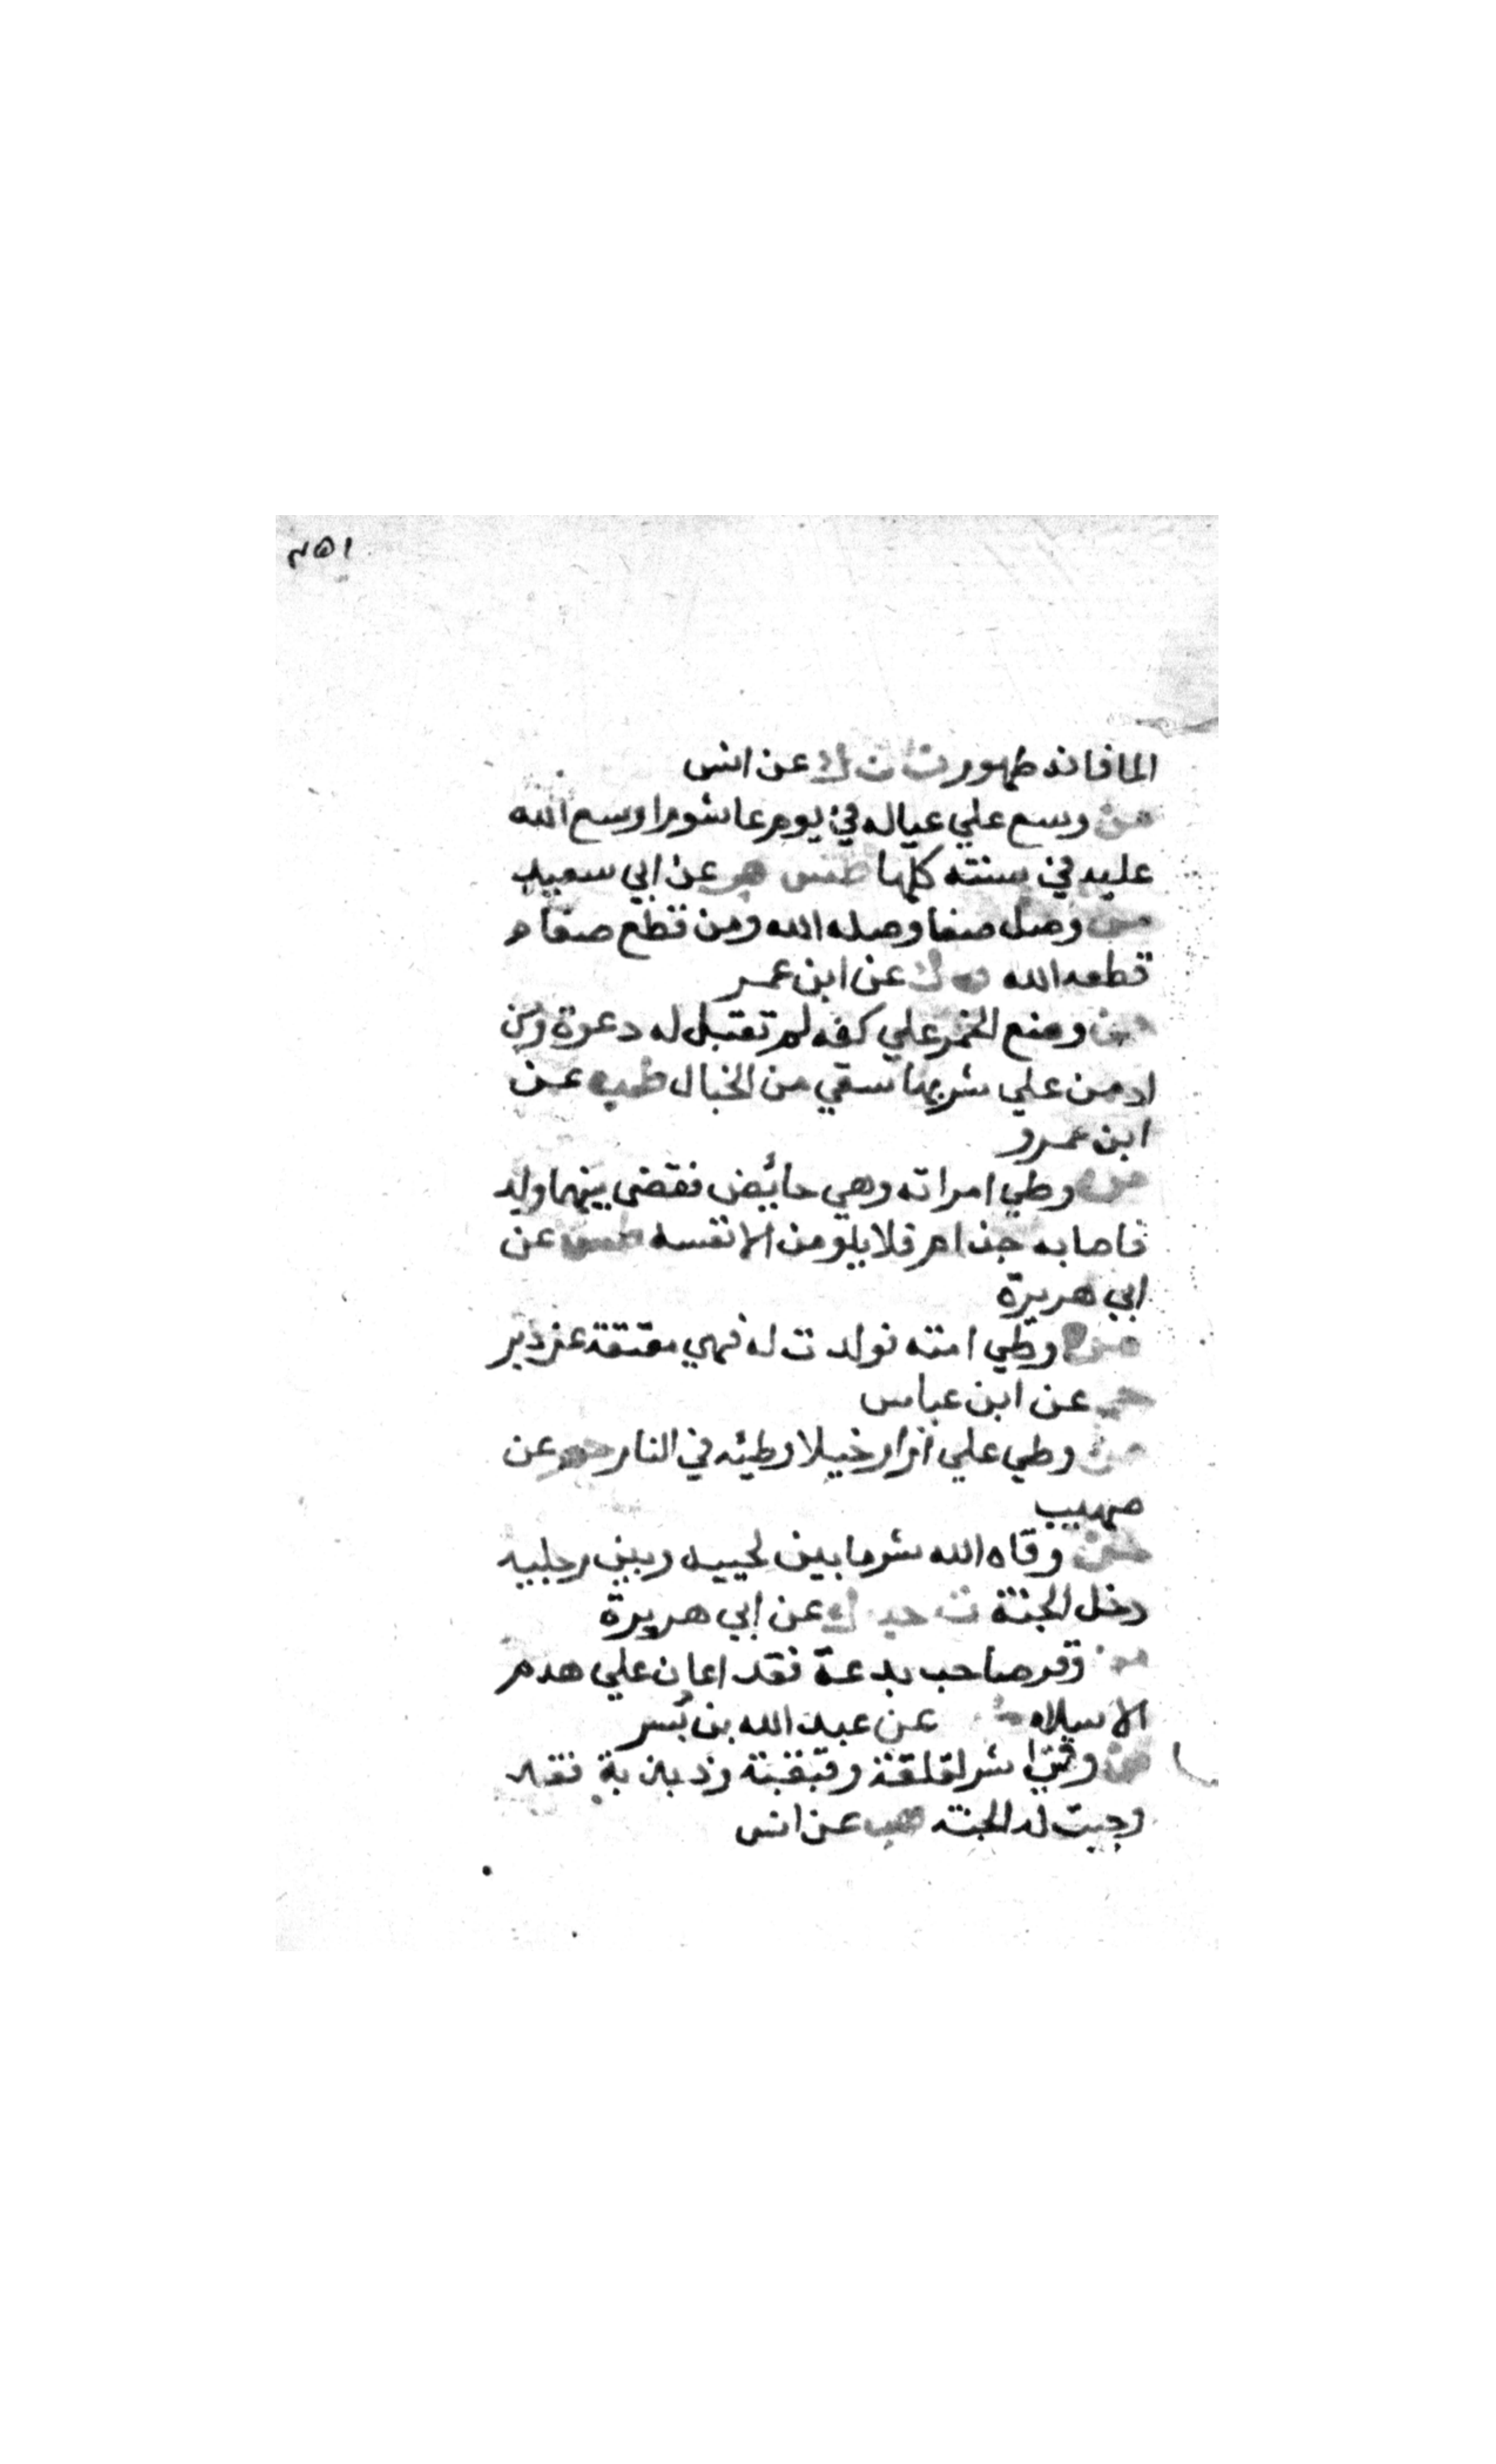 ٣٥١
الما فانه طهور ت ن ك عن انس
من وسع علي عياله في يوم عاشورا وسع الله
عليه في سنته كلها طس هب عن ابي سعيد
من وصل صفا وصله الله ومن قطع صفا م
قطعه الله ك عن ابن عمر
من وضع الخمر علي كفه لم تقبل له دعوة ومن
ادمن علي شربها سقي من الخبال طب عن
ابن عمرو
من وطي امراته وهي حائض فقضى بينهما ولد
فاصابه جذام فلا يلومن الا نفسه طس عن
ابي هريرة
من وطي امته فولدت له فهي معتقة عن دبر
حم عن ابن عباس
من وطي علي ازار خيلا وطئه في النار حم عن
صهيب
من وقاه الله شر ما بين لحييه وبين رجليه
دخل الجنة ت حب ك عن ابي هريرة
من وقر صاحب بدعة فقد اعان علي هدم
الاسلام عن عبد الله بن بُسر
من وقي شر لقلقة وقبقبة وذبذبة فقد
وجبت له الجنة هب عن انس